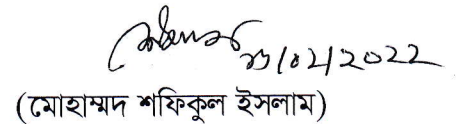 ২৩/০২/2022
(মোহাম্মদ শফিকুল ইসলাম)